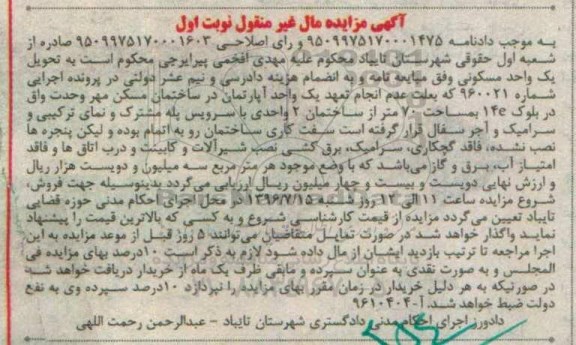 آگهی مزایده مال غیر منقول نوبت اول
به موجب دادنامه ۹۵۰۹۹۷۵۱۷۰۰۰۱۴۷۵ و رای اصلاحی ۹۵۰۹۹۷۵۱۷۰۰۰۱۶۰۳ صادره از
شعبه اول حقوقی شهرستان تایباد محکوم علیه مهدی افخمی پیرایرجی محکوم است به تحویل
یک واحد مسکونی وفق مبایعه نامه و به انضمام هزینه دادرسی و نیم عشر دولتی در پرونده اجرایی
شماره ۹۶۰۰۲۱ که بعلت عدم انجام تعهد یک واحد آپارتمان در ساختمان مسکن مهر وحدت واق
در بلوک ۱۴e بمساحت ۷۰ متر از ساختمان ۲ واحدی با سرویس پله مشترک و نمای ترکیبی و
سرامیک و آجر سفال قرار گرفته است سفت کاری ساختمان رو به اتمام بوده و لیکن پنجره ها
نصب نشده، فاقد گچکاری، سرامیک، برق کشی نصب شیرآلات و کابینت و درب اتاق ها و فاقد
امتیاز آب، برق و گاز می‌باشد که با وضع موجود هر متر مربع سه میلیون و دویست هزار ریال
و ارزش نهایی دویست و بیست و چهار میلیون ریال ارزیابی می‌گردد بدینوسیله جهت فروش،
شروع مزایده ساعت ۱۱ الی ۱۲ روز شنبه ۱۳۹۶/۷/۱۵ در محل اجرای احکام مدنی حوزه قضایی
تایباد تعیین می‌گردد مزایده از قیمت کارشناسی شروع و به کسی که بالاترین قیمت را پیشنهاد
نماید واگذار خواهد شد در صورت تمایل متقاضیان می‌توانند ۵ روز قبل از موعد مزایده به این
اجرا مراجعه تا ترتیب بازدید ایشان از مال داده شود لازم به ذکر است ۱۰درصد بهای مزایده فی
المجلس و به صورت نقدی به عنوان سپرده و مابقی ظرف یک ماه از خریدار دریافت خواهد شد
در صورتیکه به هر دلیل خریدار در زمان مقرر بهای مزایده را نپردازد ۱۰درصد سپرده وی به نفع
دولت ضبط خواهد شد. آ-۹۶۱۰۴۰۴
دادورز اجرای احکام مدنی دادگستری شهرستان تایباد - عبدالرحمن رحمت اللهی